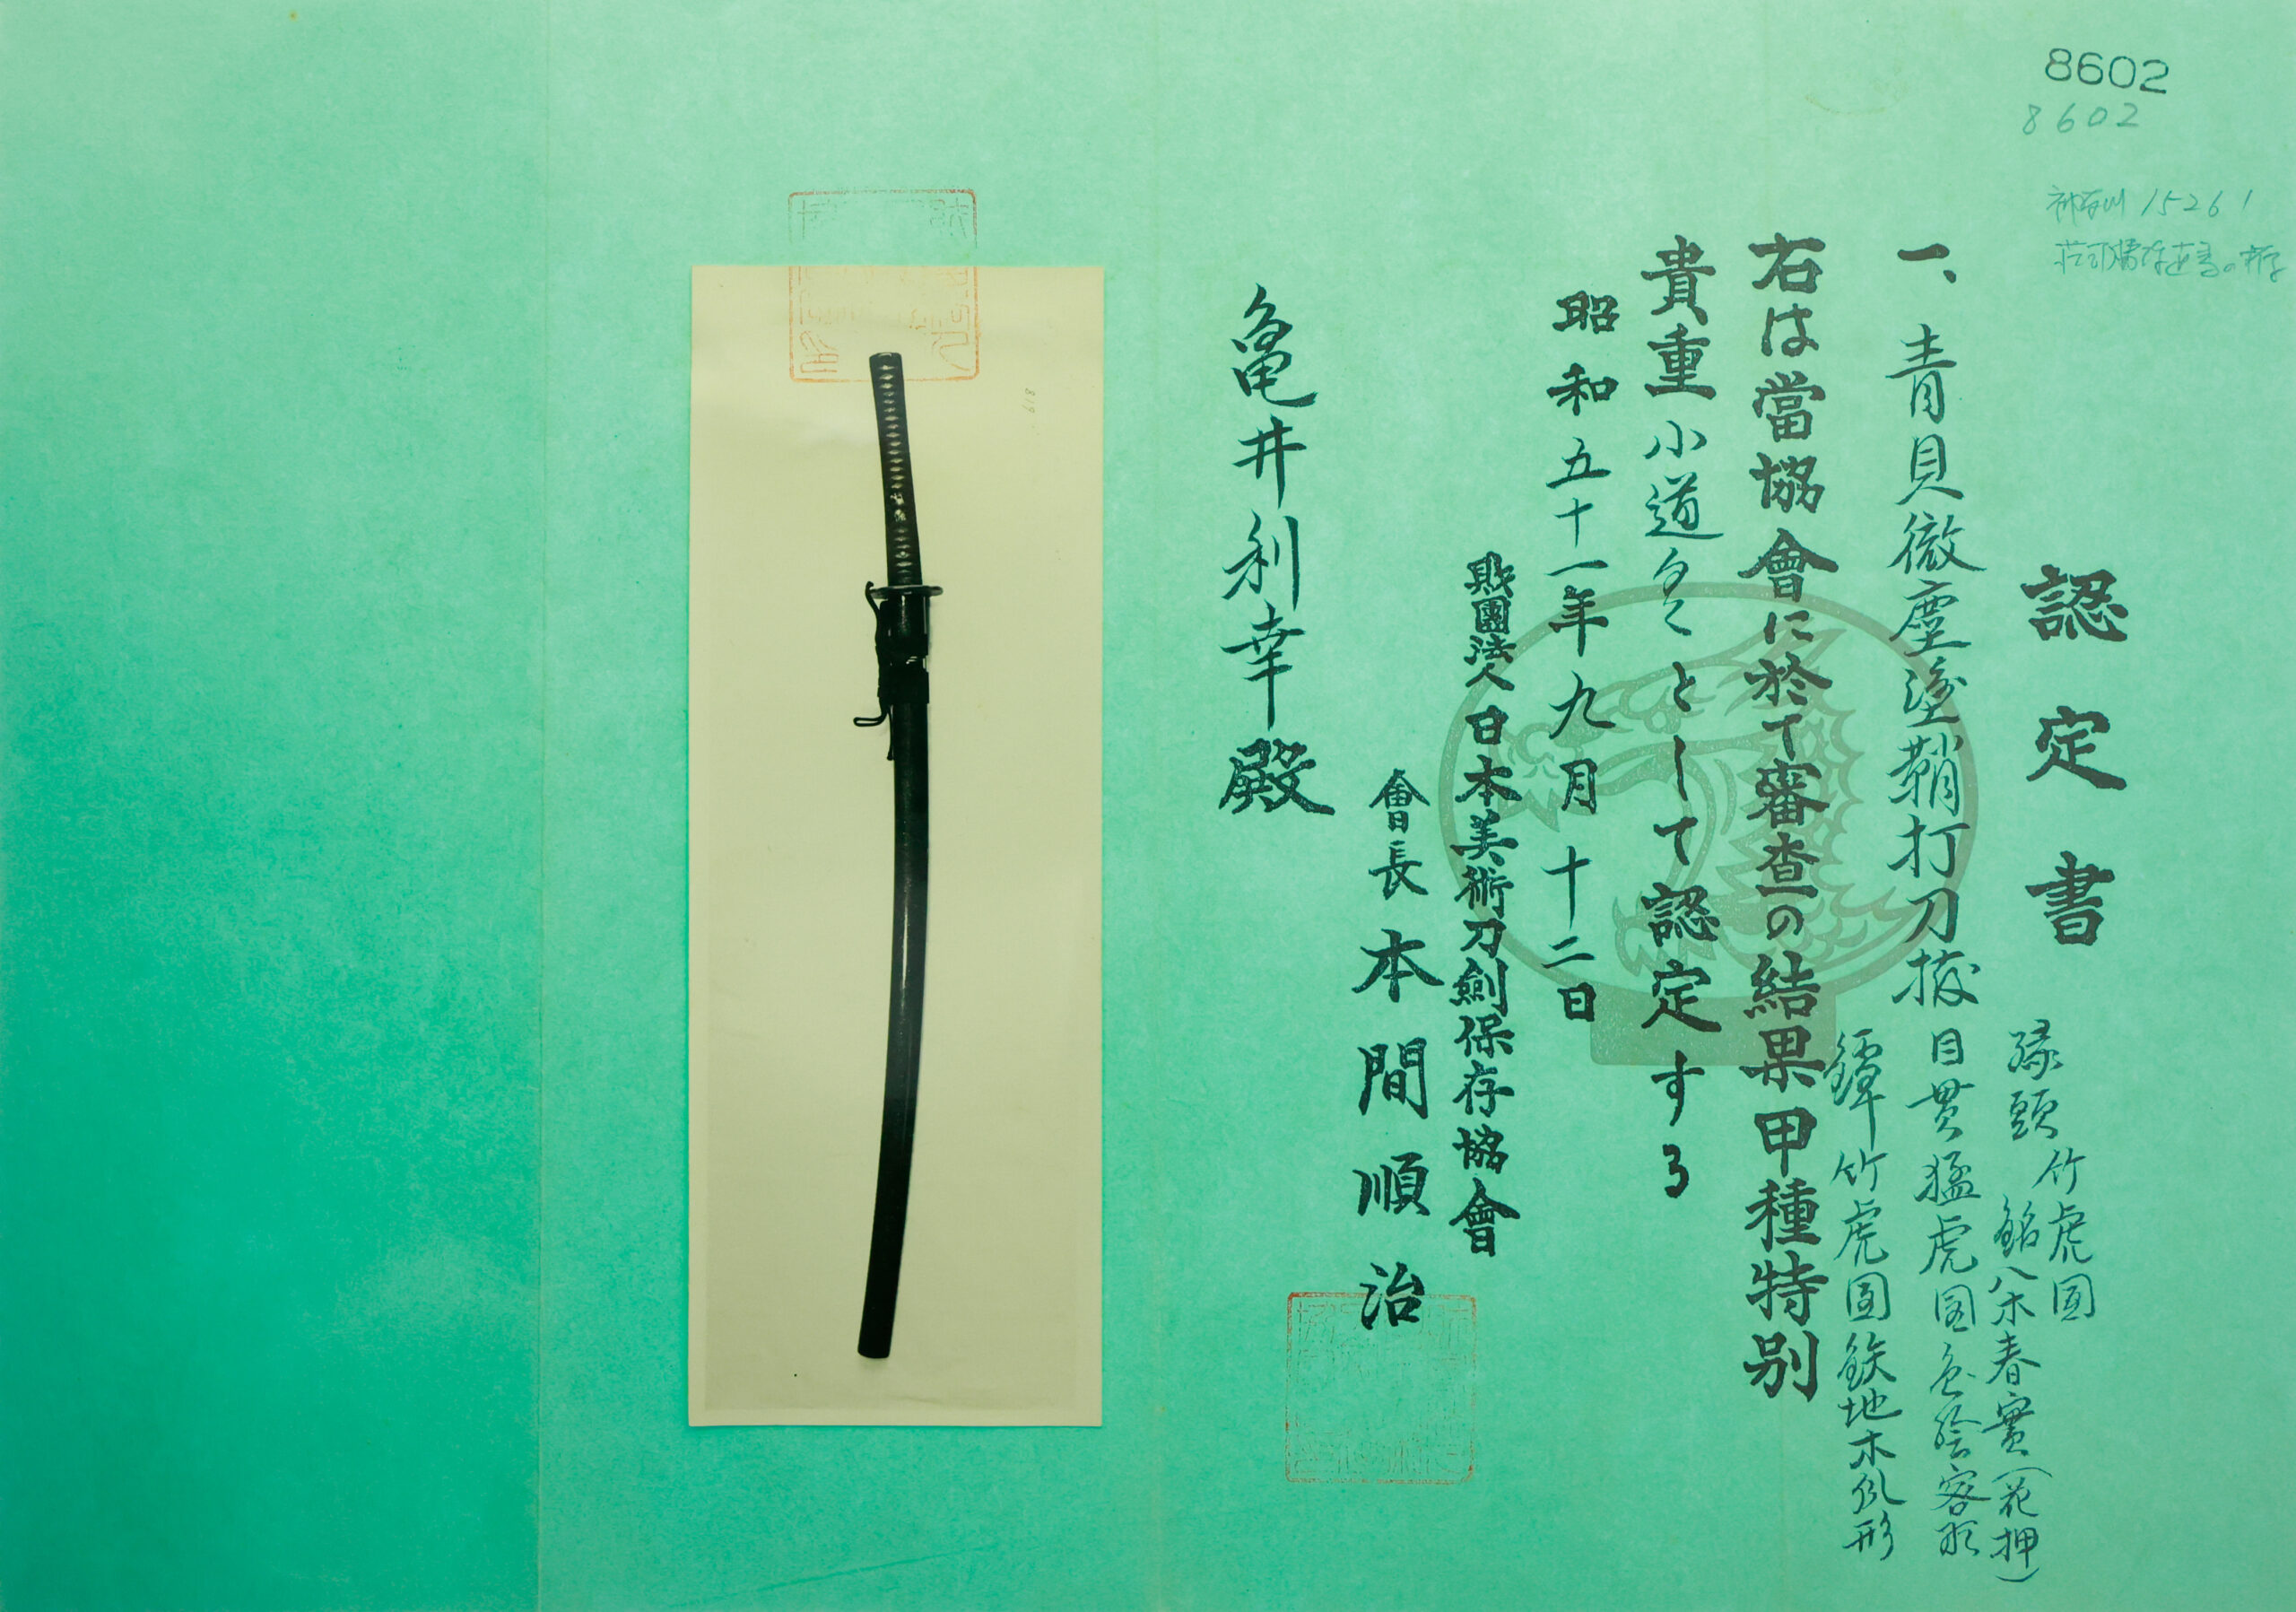 8602
8602
認定書
一、青貝微塵塗鞘打刀拵
縁頭 竹虎図
銘 八木春實(花押)
目貫 猛虎図 色絵容彫
鐔 竹虎図 鉄地木瓜形
右は當協會に於て審査の結果甲種特別
貴重小道具として認定する
昭和五十一年九月十二日
財團法人 日本美術刀劍保存協會
會長 本間順治
亀井利幸殿